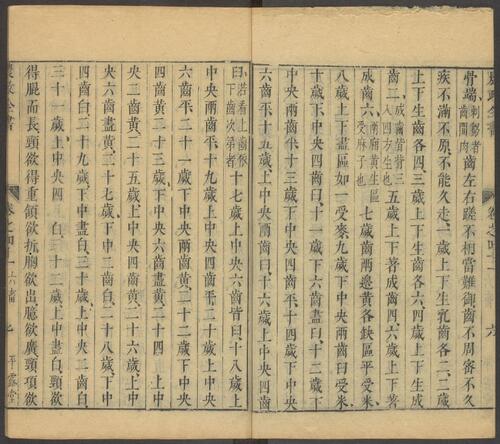 骨端刺芻者齒間肉齒左右蹉不相當難御齒不周密不久
疾不滿不原不能久走一歲上下生乳齒各二二歲
上下生齒各四三歲上下生齒各六四歲上下生成
齒二成齒皆背三入四方生也五歲上下著成齒四六歲上下著
成齒六兩廂黃生區受麻子也七歲齒兩邊黃各缺區平受米
八歲上下盡區如一受麥九歲下中央兩齒臼受米
十歲下中央四齒臼十一歲下六齒盡臼十二歲下
中央兩齒平十三歲下中央四齒平十四歲下中央
六齒平十五歲上中央兩齒臼十六歲上中央四齒
臼若看上齒依下齒次第者十七歲上中央六齒皆臼十八歲上
中央兩齒平十九歲上中央四齒平二十歲上中央
六齒平二十一歲下中央兩齒黃二十二歲下中央
四齒黃二十三歲下中央六齒盡黃二十四 上中
央二齒黃二十五歲上中央四齒黃二十六歲上中
央六齒盡黃二十七歲下中二齒白二十八歲下中
四齒白二十九歲下中盡白三十歲上中央二齒白
三十一歲上中央四 白三十二歲上中盡白頸欲
得䐔而長頸欲得重頷欲折胸欲出臆欲廣頸項欲
農政全書 卷之四十一 六畜 七 平露堂